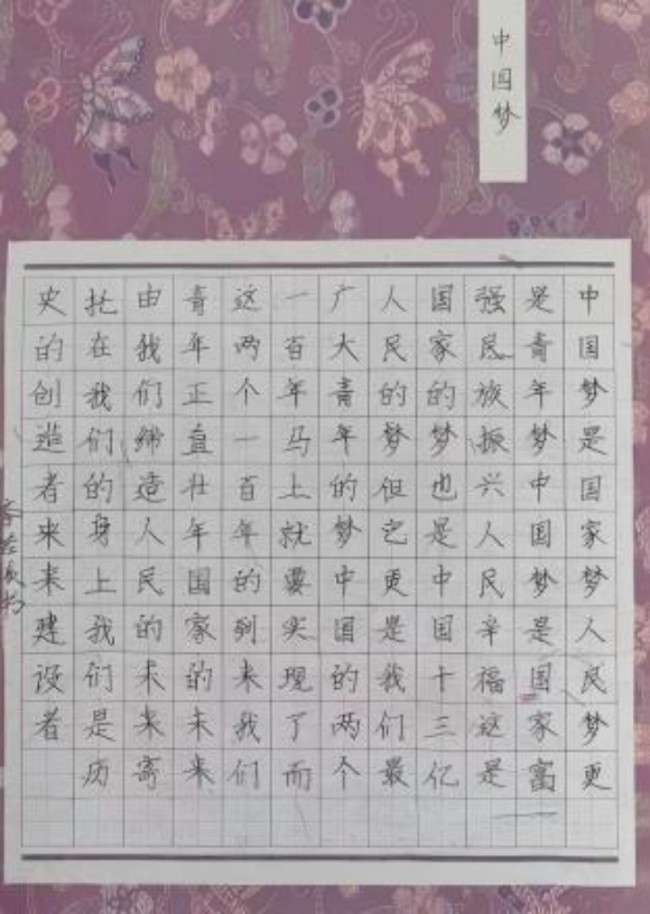 中国梦
中国梦是国家梦人民梦更
是青年梦中国梦是国家富
强民族振兴人民辛福这是
国家的梦也是中国十三亿
人民的梦但它更是我们最
广大青年的梦中国的两个
一百年马上就要实现了而
这两个一百年的到来我们
青年正直壮年国家的未来
由我们缔造人民的未来寄
托在我们的身上我们是历
史的创造者来来建设者